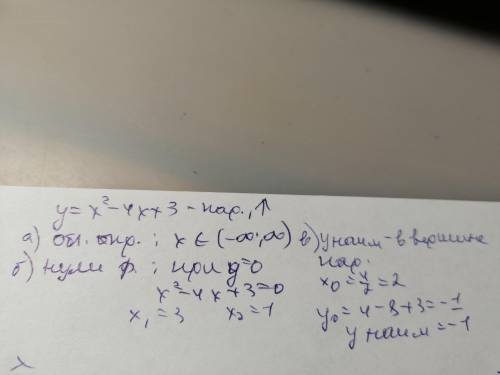 y = x² - 4x + 3 - пар., ↑
а) обл. опр.; x ∈ (-∞; ∞)
б) нули ф.; при y = 0
x² - 4x + 3 = 0
x₁ = 3 x₂ = 1
в) y наим - в вершине
пар.
x₀ = 4/2 = 2
y₀ = 4 - 8 + 3 = -1
y наим = -1